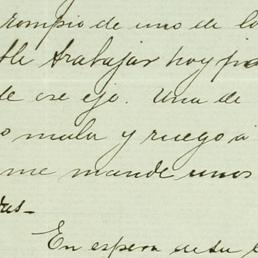 rompio de uno de lo
ble trabajar hoy po
de ese ejo. Una de
o mala y ruego a
me mande unos
as-
En espera de su